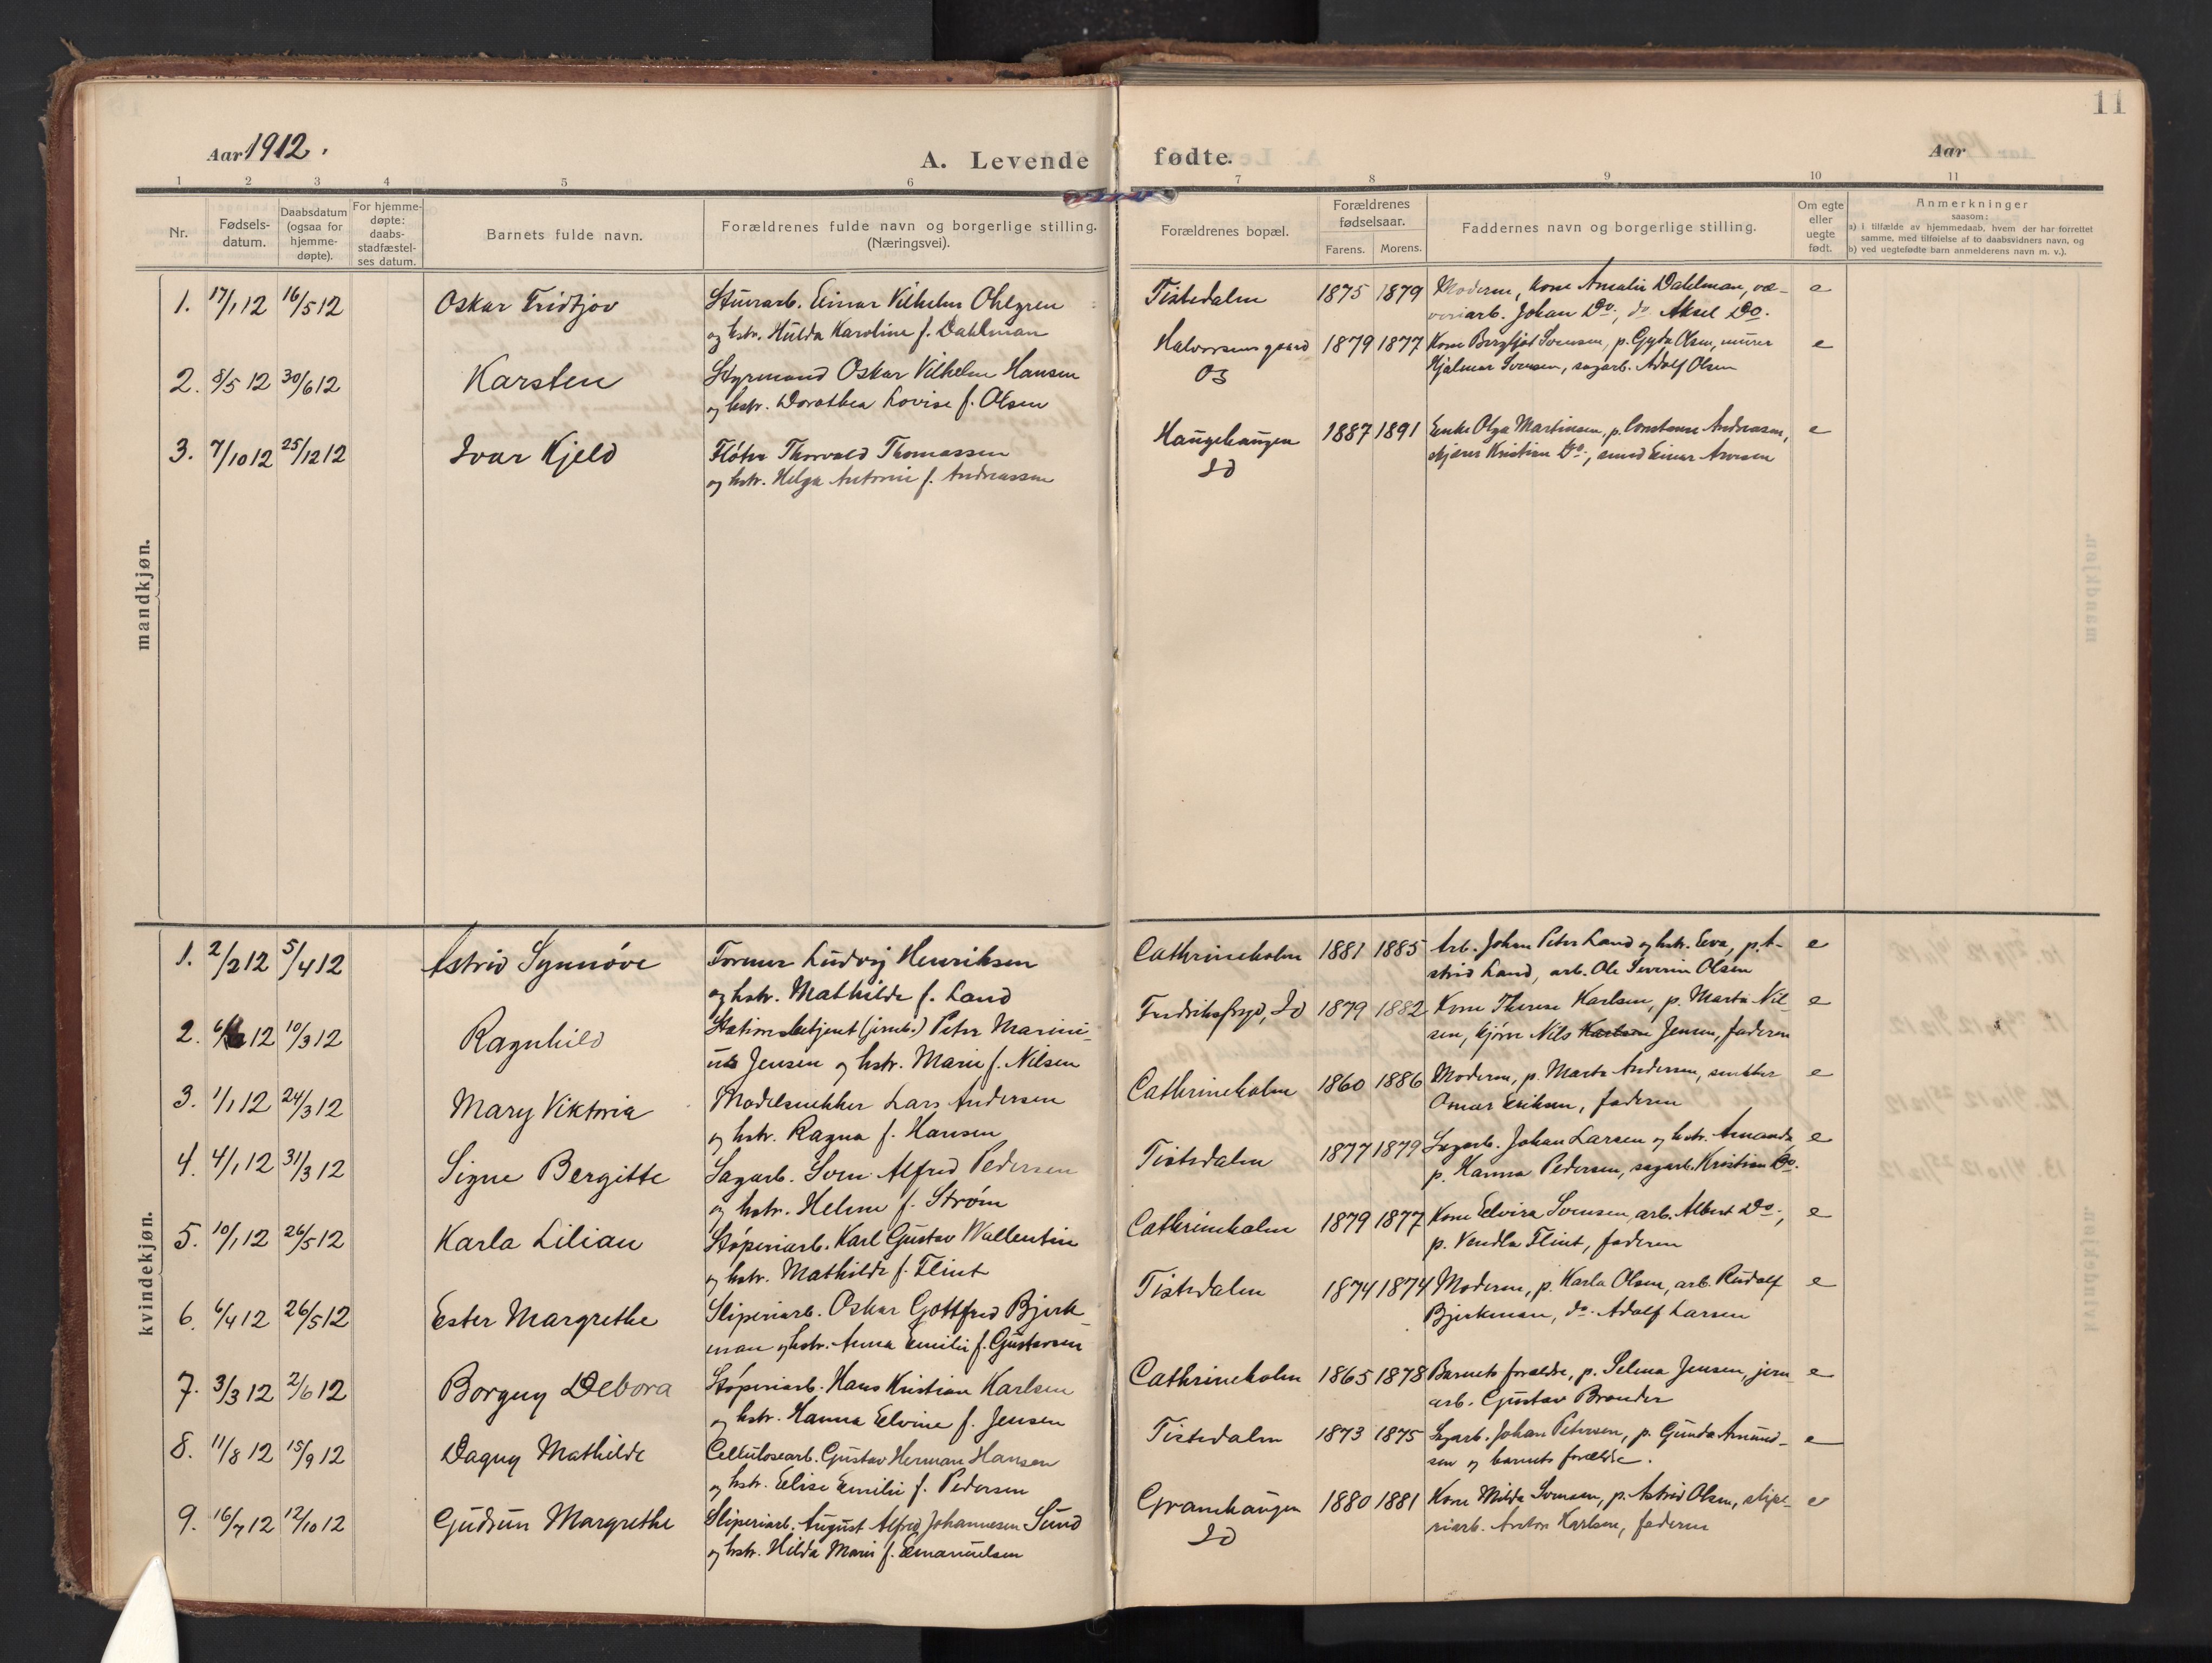 11
Aar 1912.
A. Levende fødte.
Aar
1 2 3 4 5 6 7 8 9 10 11
Nr.
Fødsels-
datum.
Daabsdatum
(ogsaa for
hjemme-
døpte).
For hjemme-
døpte:
daabs-
stadfæstel-
ses datum.
Barnets fulde navn.
Forældrenes fulde navn og borgerlige stilling.
(Næringsvei).
Forældrenes bopæl.
Forældrenes
fødselsaar.
Farens. Morens.
Faddernes navn og borgerlige stilling.
Om egte
eller
uegte
født.
Anmerkninger
saasom:
a) i tilfælde av hjemmedaab, hvem der har forrettet
samme, med tilføielse af to daabsvidners navn, og
b) ved uegtefødte barn anmelderens navn m. v.).
mandkjøn.
1. 17/1 12 16/5 12 Oskar Fridtjov Stuerarb. Einar Vilhelm Ohlgren
og hstr. Hulda Karoline f. Dahlman
Tistedalen 1875 1879 Moderen, kone Amalie Dahlman, væ-
veriarb. Johan Do., do Aksel Do. e
2. 8/5 12 30/6 12 Karsten Styrmand Oskar Vilhelm Hansen
og hstr. Dorothea Lovise f. Olsen
Halvorsens gaard
Os
1879 1877 Kone Bergljot Svensen, p. Gyda Olsen, murer
Hjalmar Svensen, sagarb. Adolf Olsen e
3. 7/10 12 25/12 12 Ivar Kjeld Fløter Thorvald Thomassen
og hstr. Helga Antonie f. Andreassen
Haugehaugen
Id
1887 1891 Enke Olga Martinsen, p. Constance Andreasen,
Kristian Do., smed Einar e
kvindekjøn.
1. 2/2 12 5/4 12 Astrid Synnøve Former Ludvig Henriksen
og hstr. Mathilde f. Land
Cathrineholm 1881 1885 Arb. Johan Peter Land og hstr. Eva, p. A-
strid Land, arb. Ole Severin Olsen e
2. 12 10/3 12 Ragnhild Stationsbetjent (jernb.) Peter Marini-
us Jensen og hstr. Marie f. Nilsen
Fredriksfryd, Id 1879 1882 Kone Therese Karlsen, p. Marta Nil-
sen, kjører Nils Karlsen Jensen, faderen e
3. 1/1 12 24/3 12 Mary Viktoria Modelsnekker Lars Andersen
og hstr. Ragna f. Hansen
Cathrineholm 1860 1886 Moderen, p. Marta Andersen, snekker
Omar Eriksen, faderen e
4. 4/1 12 31/3 12 Signe Bergitte Sagarb. Sven Alfred Pedersen
og hstr. Helene f. Strøm
Tistedalen 1877 1879 Sagarb. Johan Larsen og hstr. Amanda,
p. Hanna Pedersen, sagarb. Kristian Do. e
5. 10/1 12 26/5 12 Karla Lilian Støperiarb. Karl Gustav Wallentin
og hstr. Mathilde f. Flint
Cathrineholm 1879 1877 Kone Elvira Svensen, arb. Albert Do.,
p. Vendla Flint, faderen e
6. 6/4 12 26/5 12 Ester Margrethe Sliperiarb. Oskar Gottfred Bjerk-
man og hstr. Anna Emilie f. Gustavsen
Tistedalen 1874 1874 Moderen, p. Karla Olsen, arb. Rudolf
Bjerkman, do. Adolf Larsen e
7. 3/3 12 2/6 12 Borguy Debora Støperiarb. Hans Kristian Karlsen
og hstr. Hanna Elvine f. Jensen
Cathrineholm 1865 1878 Barnets forældre, p. Selma Jensen, jern-
arb. Gustav Brander e
8. 11/8 12 15/9 12 Dagny Mathilde Cellulosearb. Gustav Herman Hansen
og hstr. Elise Emilie f. Pedersen
Tistedalen 1873 1875 Sagarb. Johan Petersen, p. Gunda Amund-
sen og barnets forældre. e
9. 16/7 12 12/10 12 Gudrun Margrethe Sliperiarb. August Alfred Johannesen Sund
og hstr. Hilda Marie f. Emanuelsen
Granehaugen
Id
1880 1881 Kone Milda Svensen, p. Astrid Olsen, slipe-
riarb. Anton Karlsen, faderen e